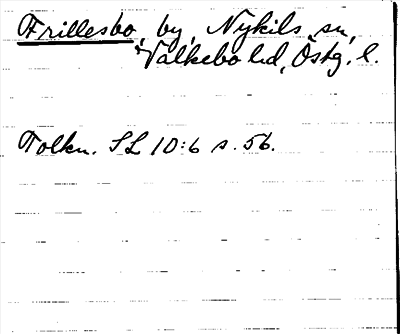 Frillesbo, by, Nykils sn,
Valkebo hd, Östg. l.
Tolkn. SL 10:6 s. 56.